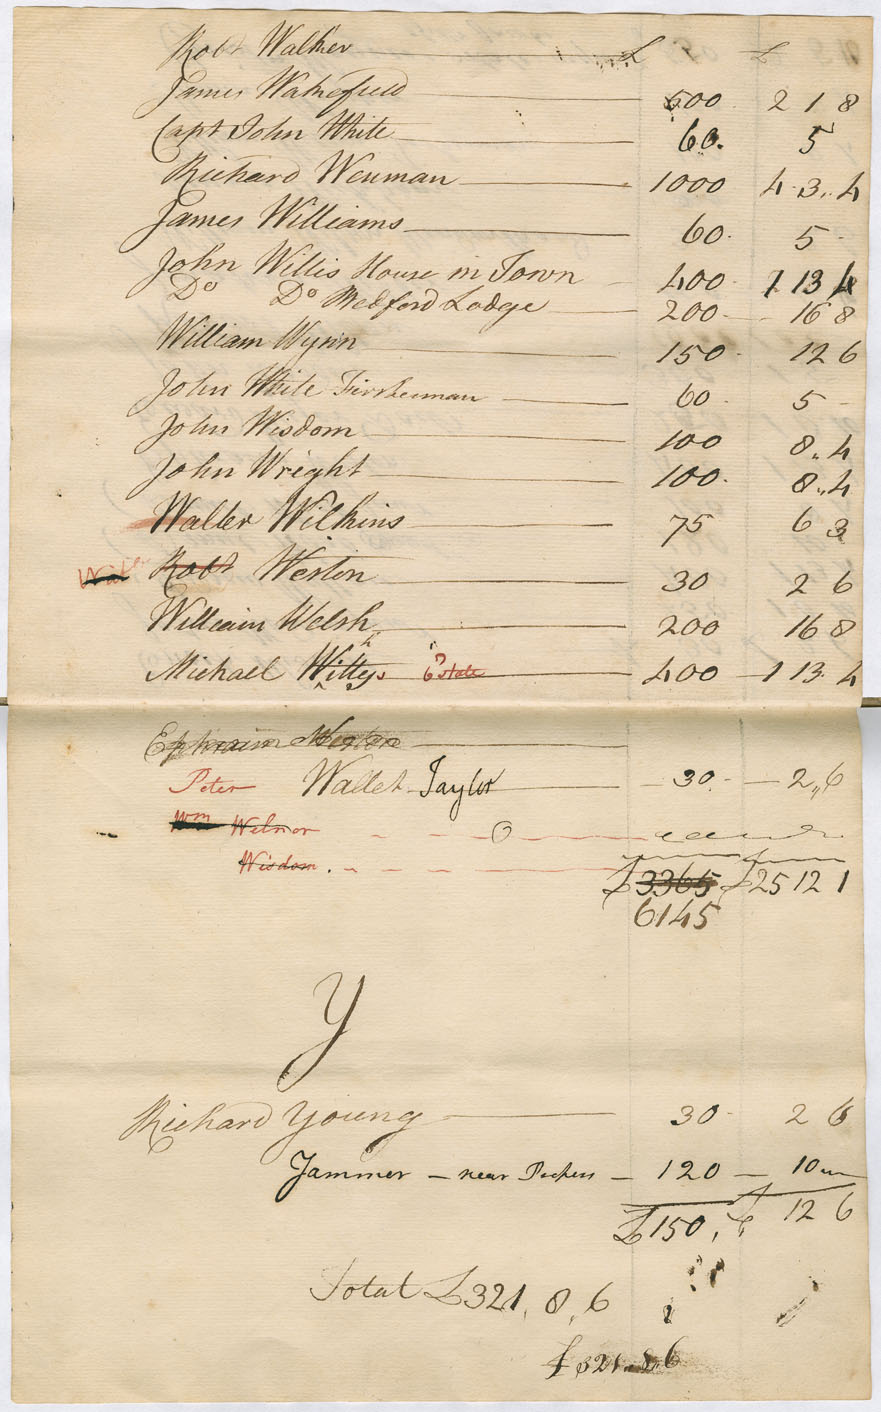 Robt Walker £ £
James Wakefield 500 2 1 8
Capt John White 60. 5
Richard Wenman 1000 4. 3. 4
James Williams 60. 5 -
John Willis House in Town 400. 1 13 4
Do Do Bedford Lodge 200 - 16 8
William Wynn 150. 12 6
John White Fisherman 60 5 -
John Wisdom 100 8. 4
John Wright 100. 8. 4
Walter Wilkins 75 6 3
Robt Weston 30 2 6
William Welsh 200 16 8
Michael Wittys Estate 400 - 1 13. 4
Ephraim Weston
Peter Wallet Taylor 30. - 2, 6
Wm Welnor
Wisdom.
£3365 £25 12 1
6145
Y
Richard Young 30 - 2 6
Jammer - near - 120 - 10
£150, £ 12 6
Total £321, 8, 6
£321. 8. 6